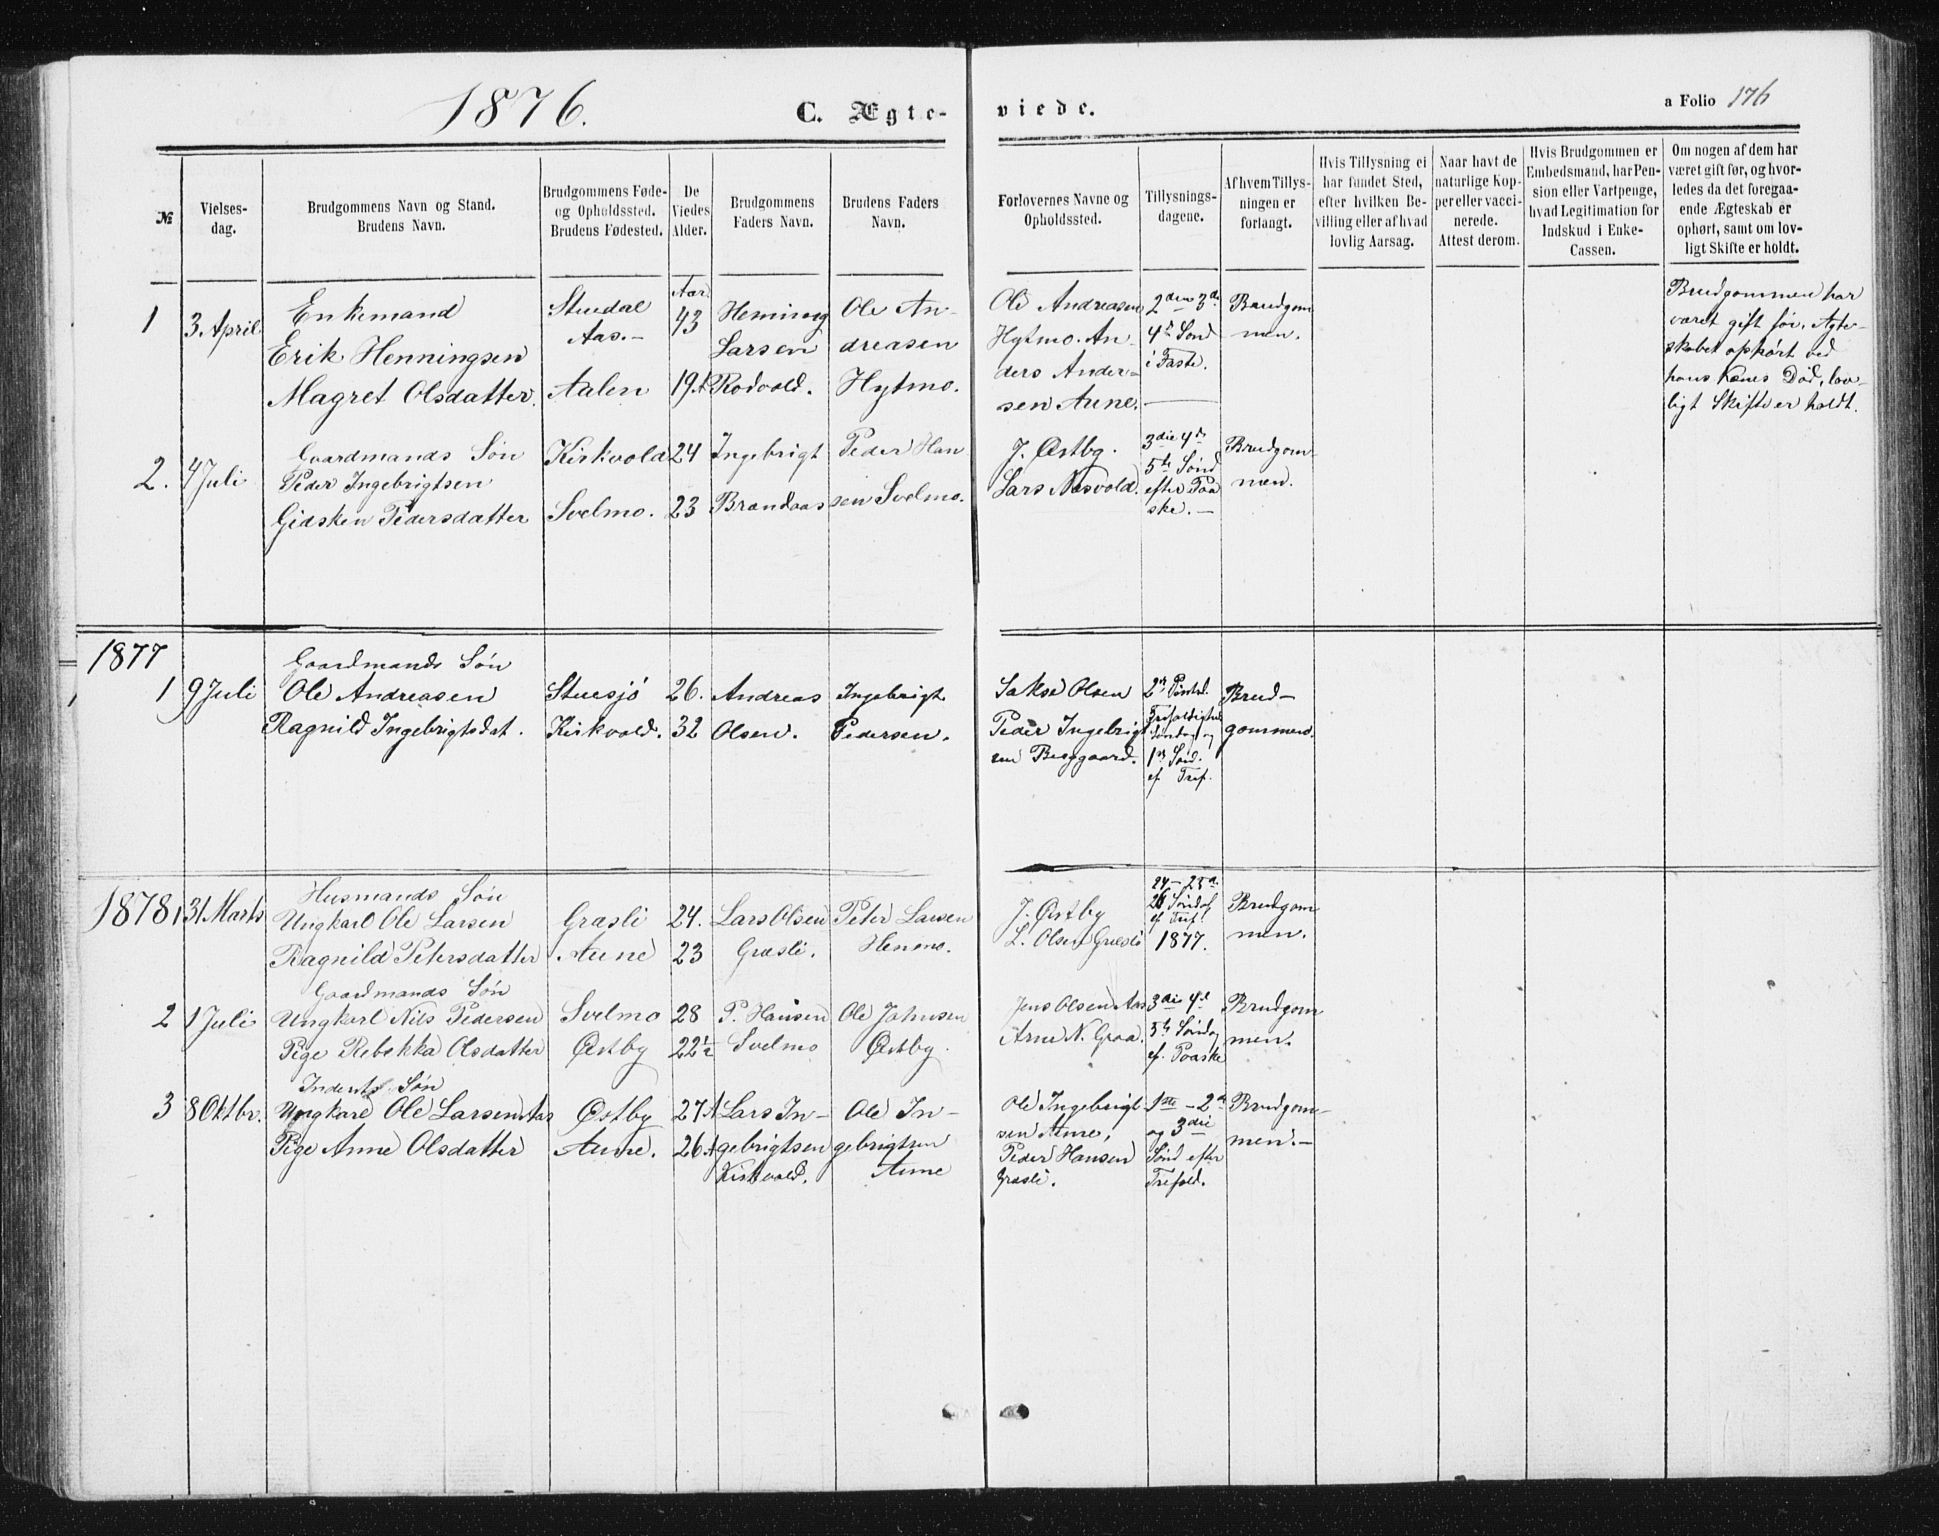 1876.
C. Ægte-
viede.
a Folio 176
№
Vielses-
dag.
Brudgommens Navn og Stand.
Brudens Navn.
Brudgommens Føde-
og Opholdssted.
Brudens Fødested.
De
Viedes
Alder.
Brudgommens
Faders Navn.
Brudens Faders
Navn.
Forlovernes Navne og
Opholdssted.
Tillysnings-
dagene.
Af hvem Tillys-
ningen er
forlangt.
Hvis Tillysning ei
har fundet Sted,
efter hvilken Be-
villing eller af hvad
lovlig Aarsag.
Naar havt de
naturlige Kop-
per eller vacci-
nerede.
Attest derom.
Hvis Brudgommen er
Embedsmand, har Pen-
sion eller Vartpenge,
hvad Legitimation for
Indskud i Enke-
Cassen.
Om nogen af dem har
været gift før, og hvor-
ledes da det foregaa-
ende Ægteskab er
ophørt, samt om lov-
ligt Skifte er holdt.
1
3. April
Enkemand
Erik Henningsen
Magret Olsdatter.
Stuedal
Aas.-
Aalen
Aar.
43
19
Heming
Larsen
Rodvold.
Ole An-
dreasen
Hytmo.
Ole Andreasen
Hytmo. An-
ders Ander-
sen Aune.
2den 3de
4de Sønd
i Faste.
Brudgom
men.
Brudgommen har
været gift før. Ægte-
skabet ophørt ved
hans Kones Død, lov-
ligt Skifte er holdt.
2.
4 Juli
Gaardmands Søn
Peder Ingebrigtsen
Gidsken Pedersdatter
Kirkvold
Svelmo.
24
23
Ingebrigt
Brandaas
Peder Han
sen Svelmo.
J. Østby.
Lars Næsvold.
3die 4de
5te Sønd
efter Paa
ske.-
Brudgom-
men.
1877
1
9 Juli
Gaardmands Søn
Ole Andreasen
Ragnild Ingebrigtsdat.
Stuesjø
Kirkvold.
26.
32
Andreas
Olsen.
Ingebrigt
Pedersen.
Sakse Olsen
Peder Ingebrigt
sen
2den
Trefoldighed
Søndag og
1ste Sønd.
ef Tref.
Brud-
gommen.
1878
1
31 Marts
Husmands Søn
Ungkarl Ole Larsen
Ragnild Petersdatter
Græsli
Aune
24.
23
Lars Olsen
Græsli.
Peter Larsen
Henmo.
J. Østby
L. Olsen Græsli
24- 25de
26 Søndag
ef Tref.
1877.
Brudgom
men.
2
1 Juli
Gaardmands Søn
Ungkarl Nils Pedersen
Pige Rebekka Olsdatter
Svelmo
Østby
28
22½
P. Hansen
Svelmo
Ole Johnsen
Østby.
Jens Olsen Aas
Arne N. Graa.
3die 4de
5te Søndag
ef. Paaske
Brudgom
men.
3
8 Oktbr.
Inderst. Søn
Ungkarl Ole Larsen Aas
Pige Anne Olsdatter
Østby
Aune.
27
26
Lars In-
gebrigtsen
Kirkvold.
Ole In-
gebrigtsen
Aune
Ole Ingebrigt
sen Aune,
Peder Hansen
Græsli.
1ste - 2den
og 3die
Sønd efter
Trefold.
Brudgom-
men.-